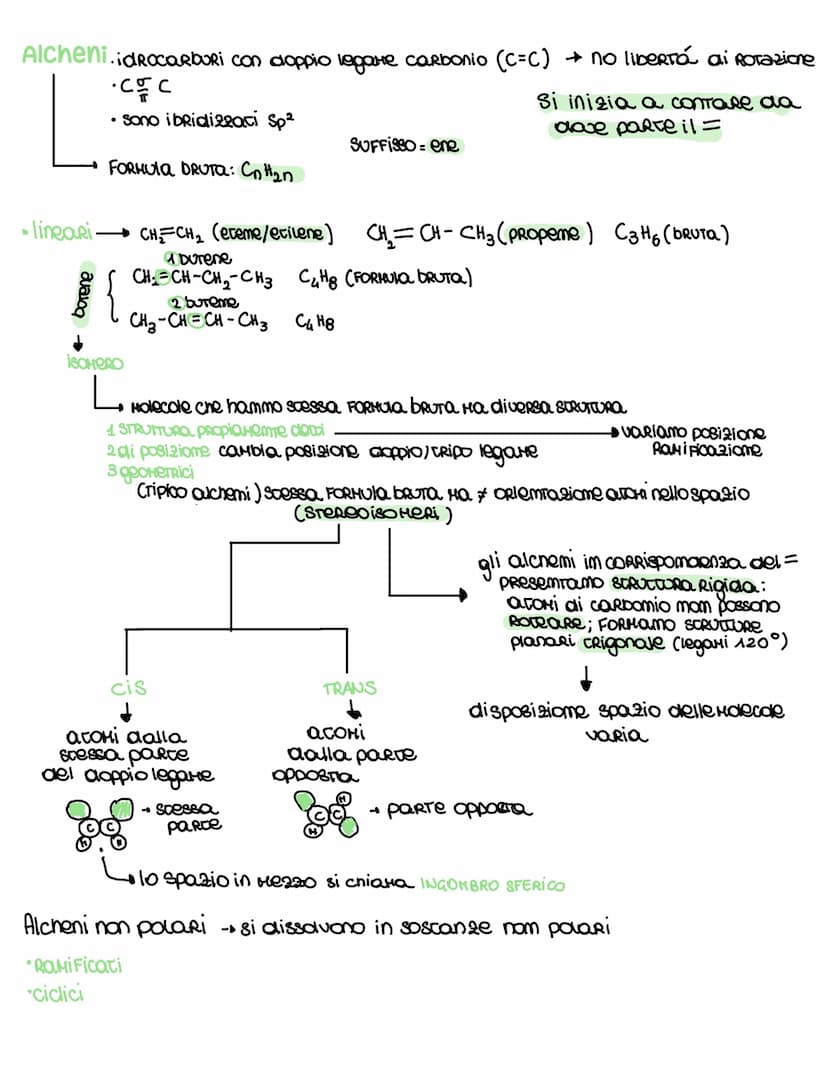 Alcheni. idrocarburi con doppio legame carbonio (C=C) → no libertá di rotazione
• C σ/π C
• sono ibridizzati sp²
Si inizia a contare da
dove parte il =
suffisso = ene
Formula bruta: CnH2n
• lineari → CH2=CH2 (etene/etilene) CH2=CH-CH3 (propene) C3H6 (bruta)
1 butene
CH2=CH-CH2-CH3 C4H8 (formula bruta)
2 butene
CH3-CH=CH-CH3 C4H8
isomero
molecole che hanno stessa formula bruta ma diversa struttura
1 struttura propriamente detti → variamo posizione
ramificazione
2 di posizione cambia posizione doppio/triplo legame
3 geometrici
(tipico alcheni) stessa formula bruta ma ≠ orientazione atomi nello spazio
(stereoisomeri)
gli alcheni in corrispondenza del =
presentano struttura rigida:
atomi di carbonio non possono
roteare; formano strutture
planari trigonale (legami 120°)
disposizione spazio delle molecole
varia
cis
atomi dalla
stessa parte
del doppio legame
→ stessa
parte
C C
H H
trans
atomi
dalla parte
opposta
→ parte opposta
H
C C
H
lo spazio in mezzo si chiama INGOMBRO SFERICO
Alcheni non polari → si dissolvono in sostanze non polari
• Ramificati
• ciclici